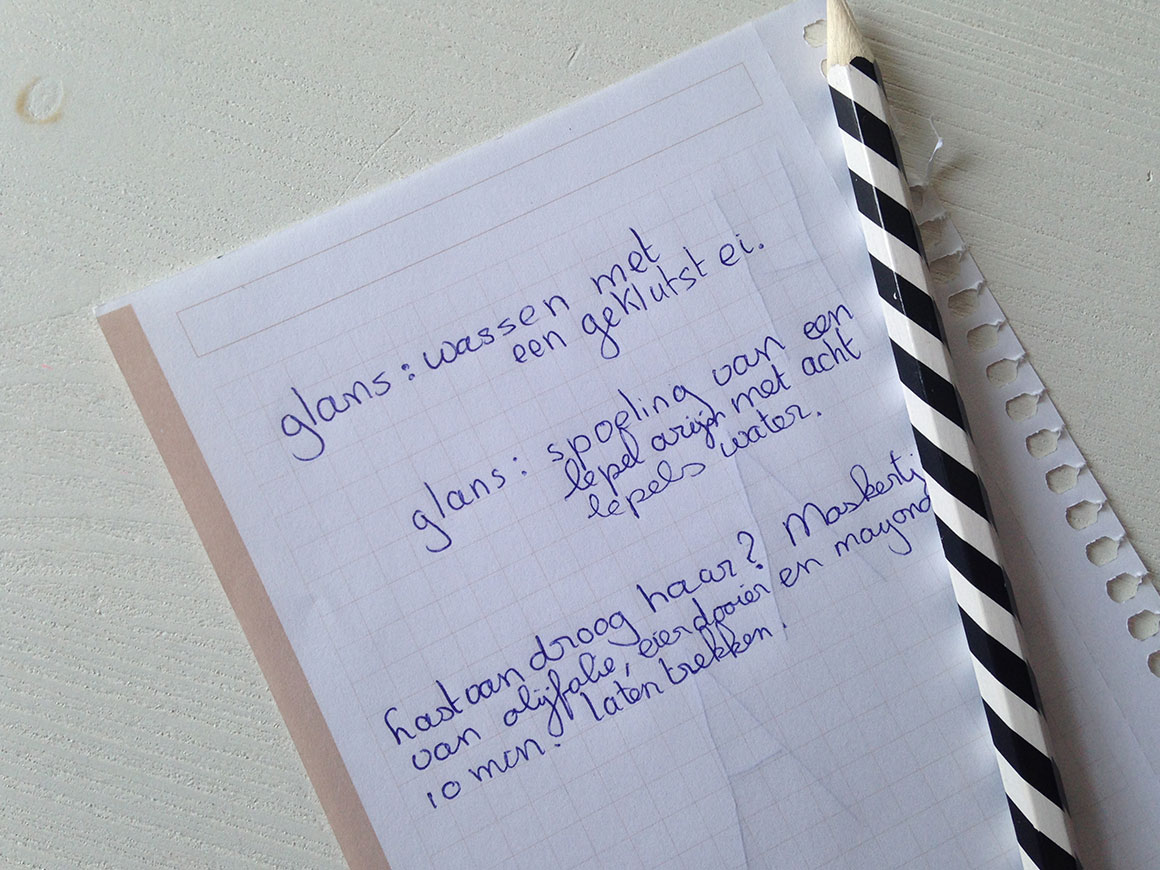 glans: wassen met
een geklutst ei.
glans: spoeling van een
lepel azijn met acht
lepels water.
Last van droog haar? Maskertj
van olijfolie, eierdooier en mayon
10 min. laten trekken.